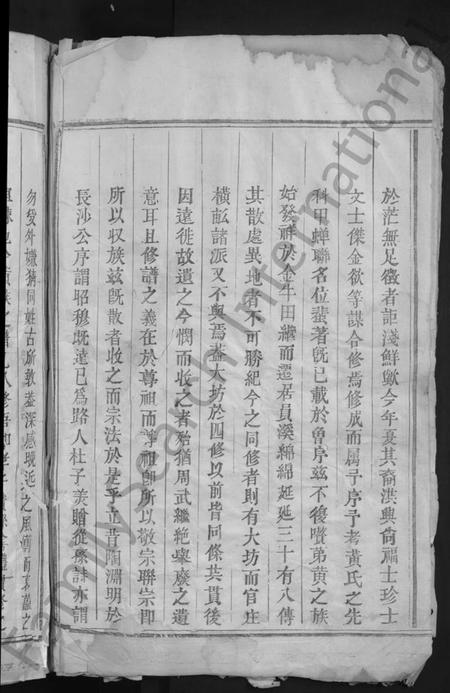 於茫無足徵者詎淺鮮歟今年夏其裔洪興尙福士珍士
文士傑金欲等謀合修焉修成而属予序予考黃氏之先
科甲蟬聯名位蜚著旣已載於魯序兹不復贅第黃之族
始發祥於金牛田繼而遷居員溪綿綿延延三十有八傳
其散處異地者不可勝紀今之同修者則有大坊而官庄
橫㽘諸派又不與焉葢大坊於四修以前皆同條共貫後
因遠徙故遺之今憫而收之者殆猶周武繼絶舉廢之遺
意耳且修譜之義在於尊祖而尊祖卽所以敬宗聯宗卽
所以収族兹旣散者收之而宗法於是乎立昔陶淵明於
長沙公序謂昭穆旣遠已爲路人杜子美贈從孫詩亦謂
勿受外嫌猜同姓古所敦葢深慮晚近之風傳而哀薄之
FamilySearch International